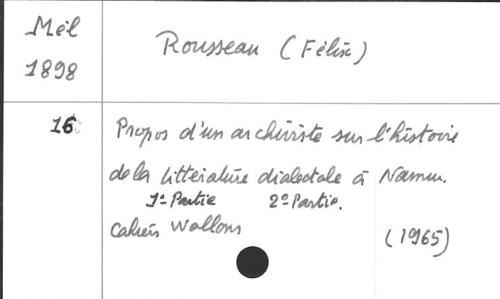 Mél
1898
Rousseau (Félix)
16
Propos d'un archiviste sur l'histoire
de la littérature dialectale à Namur.
1e Partie 2e Partie.
Cahiers Wallons
(1965)